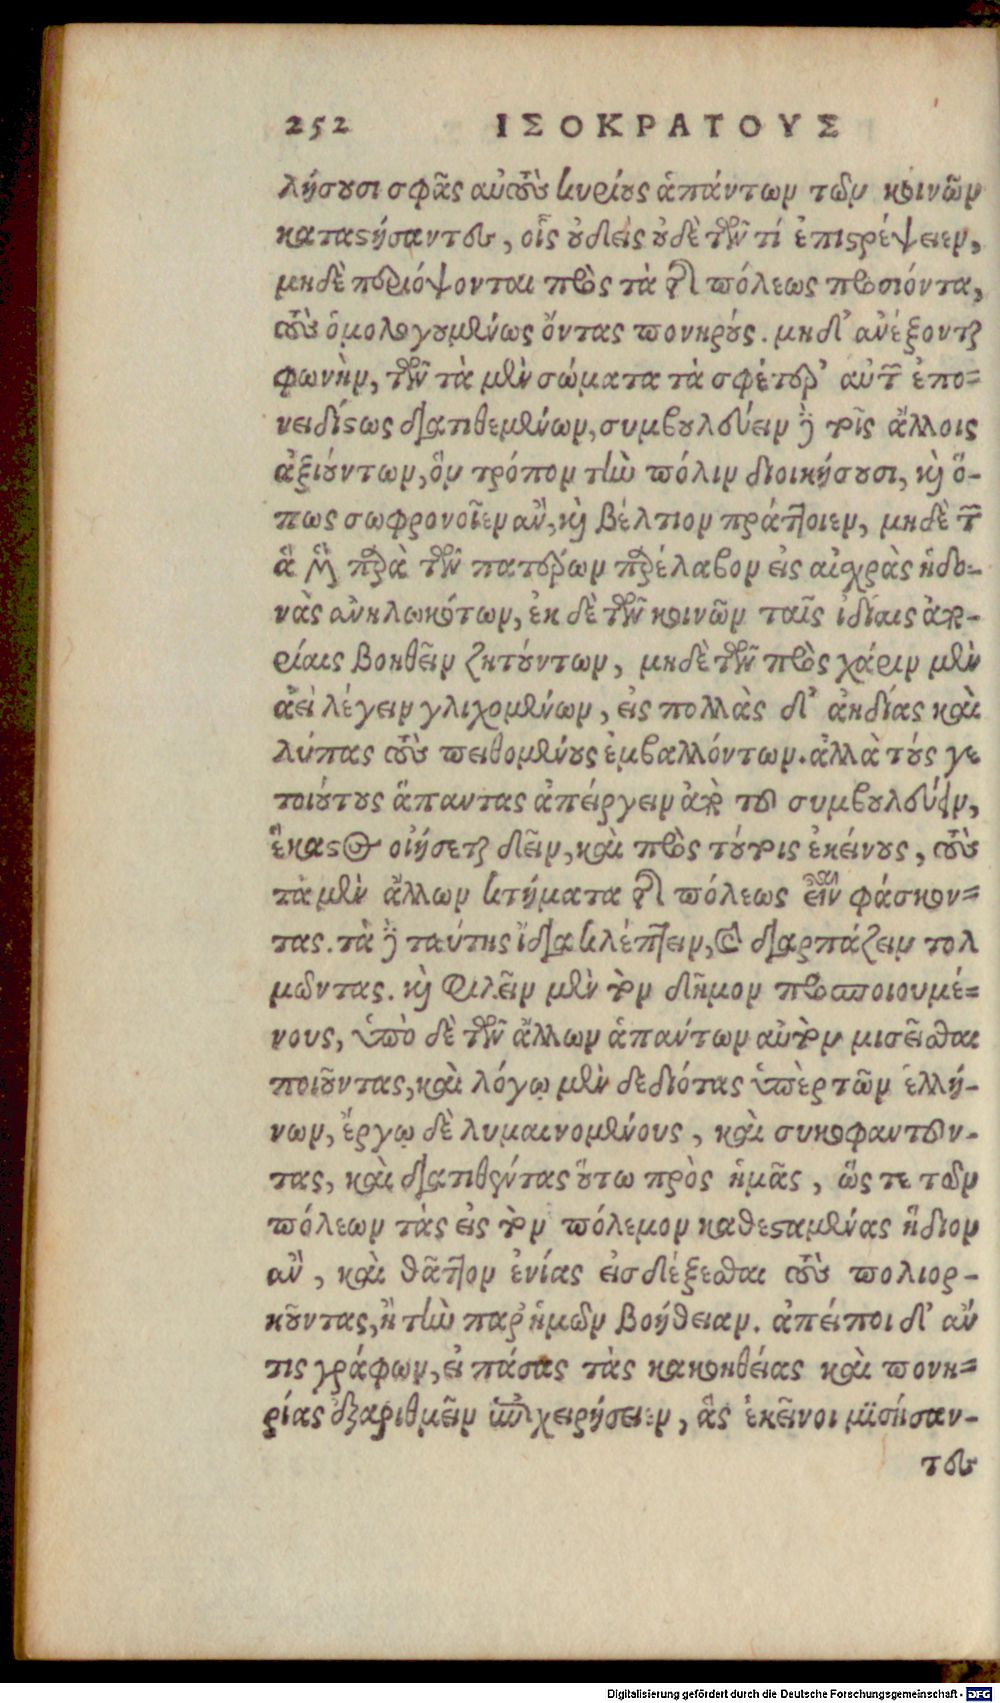 252 ΙΣΟΚΡΑΤΟΥΣ
λήσουσι σφᾶς αὐτοὺς κυρίους ἁπάντων τῶν κοινῶν
καταστήσαντες, οἷς οὐδεὶς οὐδὲ τῶν τί ἐπιστρέψειεν,
μηδὲ περιόψονται πρὸς τὰ τῆς πόλεως προσιόντα,
τοὺς ὁμολογουμένως ὄντας πονηρούς. μηδ' ἀνέξονται
φωνὴν, τῶν τὰ μὲν σώματα τὰ σφέτερ' αὐτῶν ἐπο-
νειδίστως διατιθεμένων, συμβουλεύειν δὲ τοῖς ἄλλοις
ἀξιούντων, ὃν τρόπον τὴν πόλιν διοικήσουσι, καὶ ὅ-
πως σωφρονοῖεν ἂν, καὶ βέλτιον πράττοιεν, μηδὲ τῶν
ἃ μὲν παρὰ τῶν πατέρων παρέλαβον εἰς αἰσχρὰς ἡδο-
νὰς ἀνηλωκότων, ἐκ δὲ τῶν κοινῶν ταῖς ἰδίαις ἀπο-
ρίαις βοηθεῖν ζητούντων, μηδὲ τῶν πρὸς χάριν μὲν
ἀεὶ λέγειν γλιχομένων, εἰς πολλὰς δ' ἀηδίας καὶ
λύπας τοὺς πειθομένους ἐμβαλλόντων. ἀλλὰ τούς γε
τοιούτους ἅπαντας ἀπείργειν ἀπὸ τοῦ συμβουλεύειν,
ἕκαστος οἰήσεται δεῖν, καὶ πρὸς τούτοις ἐκείνους, τοὺς
τὰ μὲν ἄλλων κτήματα τῆς πόλεως εἶναι φάσκον-
τας. τὰ δὲ ταύτης ἴδια κλέπτειν, καὶ διαρπάζειν τολ
μῶντας. καὶ φιλεῖν μὲν τὸν δῆμον προσποιουμέ-
νους, ὑπὸ δὲ τῶν ἄλλων ἁπάντων αὐτὸν μισεῖσθαι
ποιοῦντας, καὶ λόγῳ μὲν δεδιότας ὑπὲρ τῶν ἑλλή-
νων, ἔργῳ δὲ λυμαινομένους, καὶ συκοφαντοῦν-
τας, καὶ διατιθέντας οὕτω πρὸς ἡμᾶς, ὥς τε τῶν
πόλεων τὰς εἰς τὸν πόλεμον καθεσταμένας ἥδιον
ἂν, καὶ θᾶττον ἐνίας εἰσδέξεσθαι τοὺς πολιορ-
κοῦντας, ἢ τὴν παρ' ἡμῶν βοήθειαν. ἀπείποι δ' ἄν
τις γράφων, εἰ πάσας τὰς κακοηθείας καὶ πονη-
ρίας ἐξαριθμεῖν ἐπιχειρήσειεν, ἃς ἐκεῖνοι μισήσαν-
τες
Digitalisierung gefördert durch die Deutsche Forschungsgemeinschaft - DFG